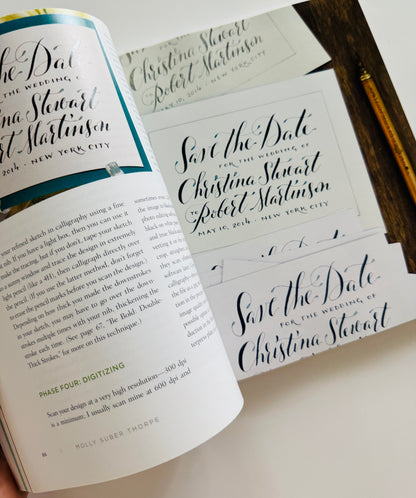 the-Date
THE WEDDING OF
Stewart
Martinson
2014 · NEW YORK CITY
your refined sketch in calligraphy using a fine
nib. If you have a light box, then you can use it
make the tracing, but if you don't, tape your sketch
a sunny window and trace the design in extremely
light pencil (like a 2H), then calligraph directly over
the pencil. (If you use the latter method, don't forget
to erase the pencil marks before you scan the design.)
Depending on how thick you made the downstrokes
in your sketch, you may have to go over the down
strokes multiple times with your nib, thickening the
stroke each time. (See page 67, "Be Bold: Double-
Thick Strokes," for more on this technique.)
PHASE FOUR: DIGITIZING
Scan your design at a very high resolution—300 dpi
is a minimum. I usually scan mine at 600 dpi and
the image is
photo editing
black or
86 MOLLY SUBER THORPE
FOR THE WEDDING OF
Christina Stewart
TO Robert Martinson
MAY 10, 2014 · NEW YORK CITY
Save the Date
FOR THE WEDDING OF
Christina Stewart
TO Robert Martinson
MAY 10, 2014 · NEW YORK CITY
Save the Date
FOR THE WEDDING OF
Christina Stewart